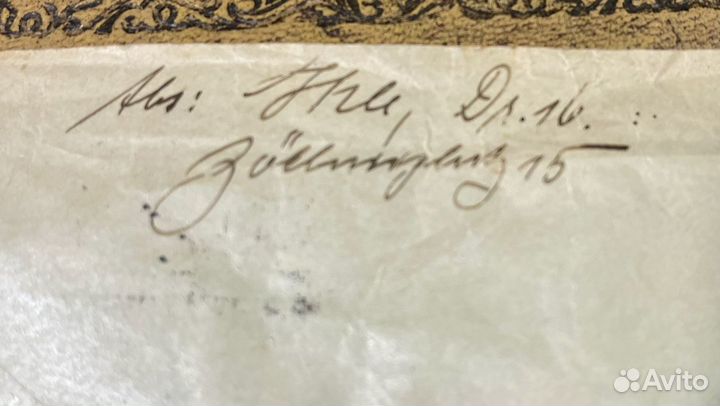 Abs: Ihle, Dr. 16. :.
Zöllnerplatz 15
Avito